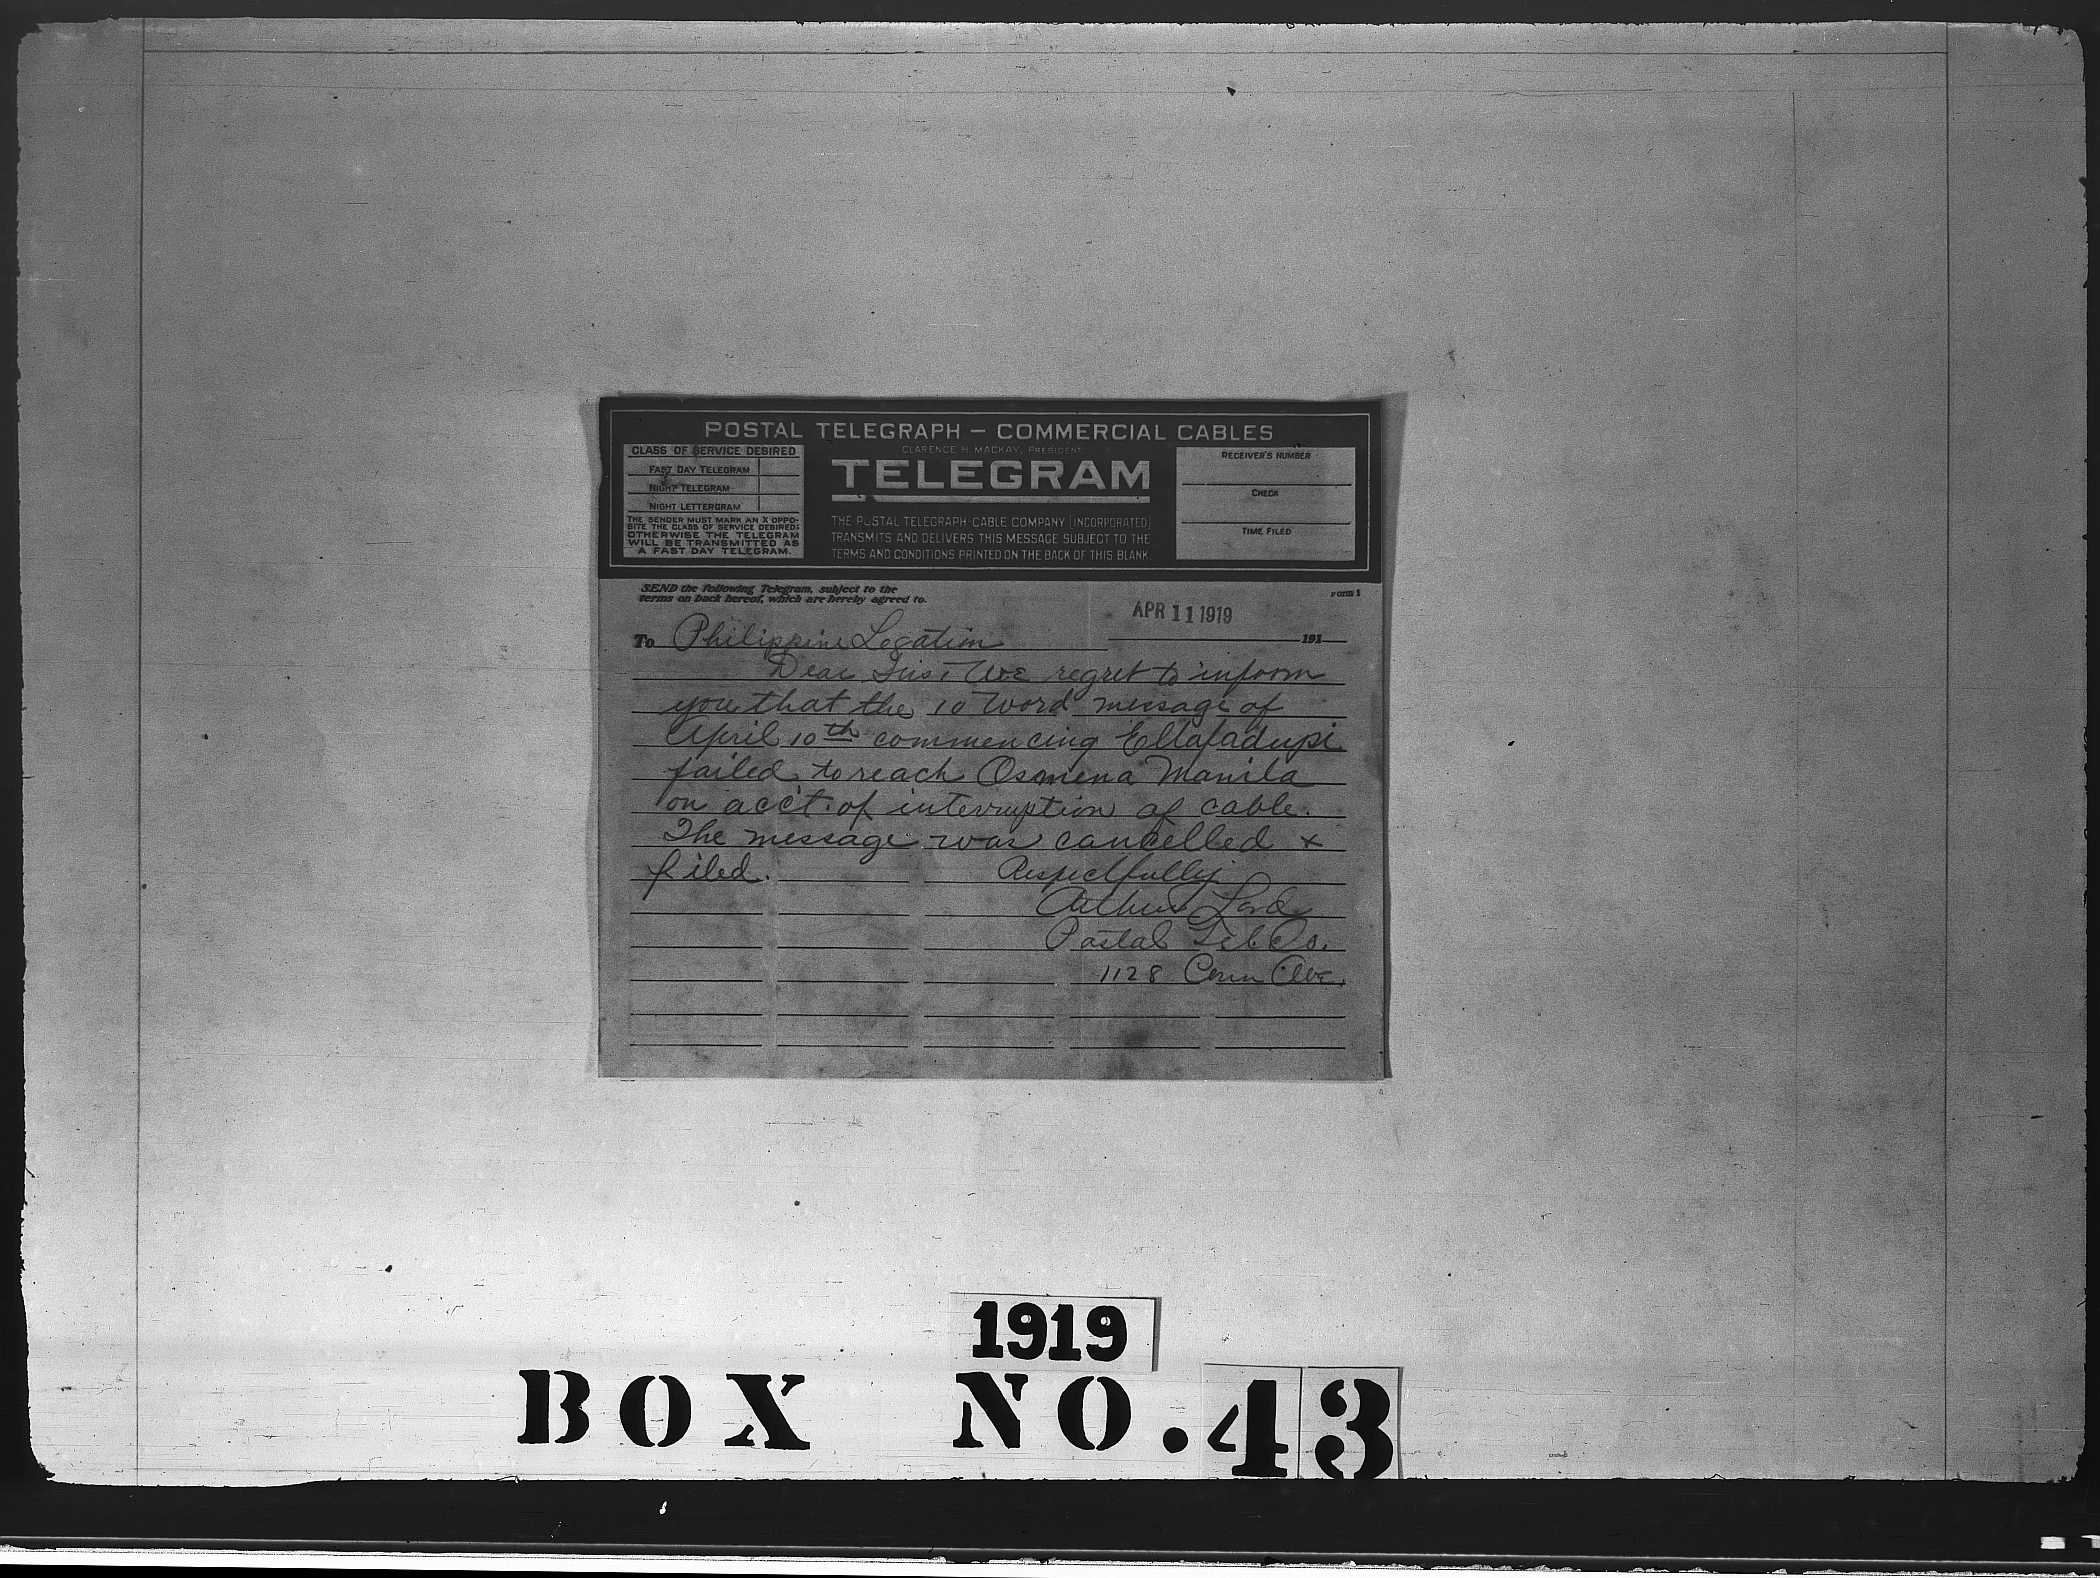 POSTAL TELEGRAPH – COMMERCIAL CABLES
CLARENCE H. MACKAY, PRESIDENT
TELEGRAM
CLASS OF SERVICE DESIRED
FAST DAY TELEGRAM
NIGHT TELEGRAM
NIGHT LETTERGRAM
THE SENDER MUST MARK AN X OPPO-
SITE THE CLASS OF SERVICE DESIRED:
OTHERWISE THE TELEGRAM
WILL BE TRANSMITTED AS
A FAST DAY TELEGRAM.
THE POSTAL TELEGRAPH-CABLE COMPANY (INCORPORATED)
TRANSMITS AND DELIVERS THIS MESSAGE SUBJECT TO THE
TERMS AND CONDITIONS PRINTED ON THE BACK OF THIS BLANK.
RECEIVER'S NUMBER
CHECK
TIME FILED
SEND the following Telegram, subject to the
terms on back hereof, which are hereby agreed to.
Form 1
APR 11 1919
191
To Philippine Legation
Dear Sirs: We regret to inform
you that the 10 word message of
April 10th commencing
failed to reach Osmena Manila
on acc't. of interruption of cable.
The message was cancelled &
filed. Respectfully
Arthur Lord
Postal Tel Co.
1128 Conn Ave.
1919
BOX NO. 43